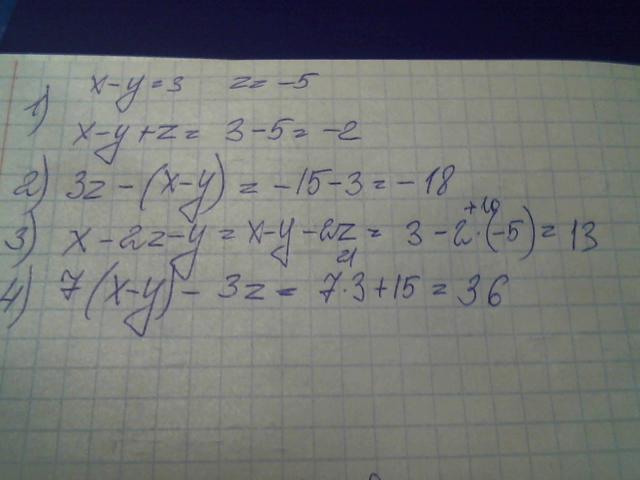 x-y=3 z=-5
1) x-y+z= 3-5=-2
2) 3z-(x-y)=-15-3=-18
+10
3) x-2z-y=x-y-2z= 3-2·(-5)=13
21
4) 7(x-y)-3z= 7·3+15=36